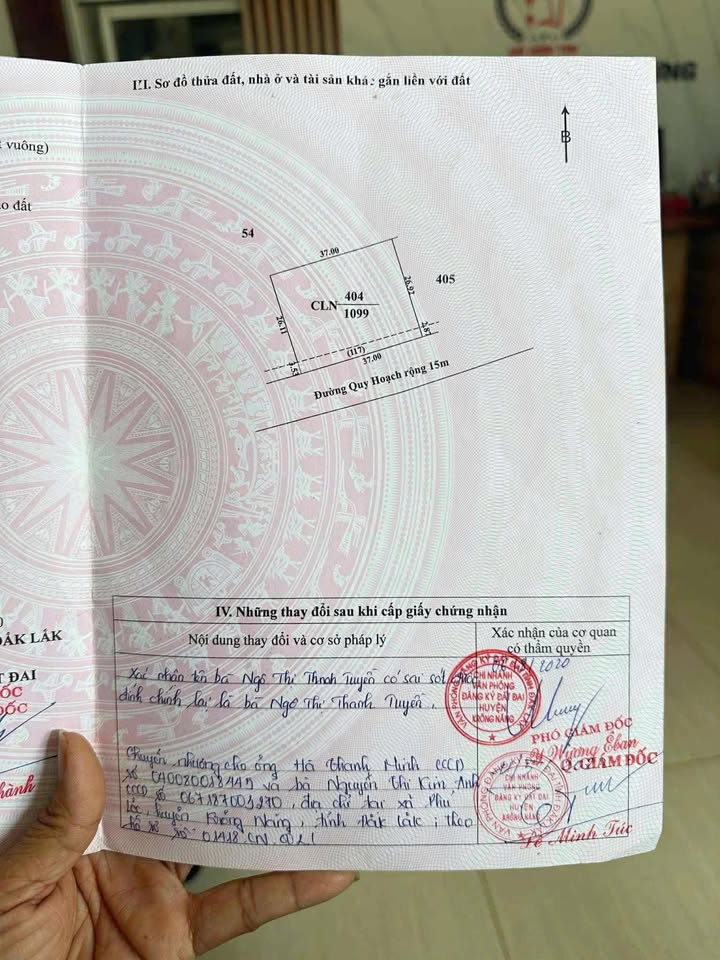 III. Sơ đồ thửa đất, nhà ở và tài sản khác gắn liền với đất
vuông)
o đất
B
54
37.00
26.92
405
CLN 404
1099
26.11
2.87
(117)
3.53
37.00
Đường Quy Hoạch rộng 15m
ĐẮK LẮK
ĐẤT ĐAI
ĐỐC
ĐỐC
hành
IV. Những thay đổi sau khi cấp giấy chứng nhận
Nội dung thay đổi và cơ sở pháp lý
Xác nhận của cơ quan
có thẩm quyền
Xác nhận tên bà Ngô Thị Thnah Tuyền có sai sót
đính chính lại là bà Ngô Thị Thanh Tuyền.
2020
VĂN PHÒNG ĐĂNG KÝ ĐẤT ĐAI TỈNH ĐẮK LẮK
CHI NHÁNH
VĂN PHÒNG
ĐĂNG KÝ ĐẤT ĐAI
HUYỆN
KRÔNG NĂNG
PHÓ GIÁM ĐỐC
Y Wương Êban
Chuyển nhượng cho ông Hà Thanh Minh CCCD
số và bà Nguyễn Thị Kim Anh
CCCD số địa chỉ tại xã Phú
Lộc, huyện Krông Năng, tỉnh Đắk Lắk; theo
hồ sơ số
GIÁM ĐỐC
CHI NHÁNH
VĂN PHÒNG
ĐĂNG KÝ ĐẤT ĐAI
HUYỆN
KRÔNG NĂNG
Lê Minh Túc